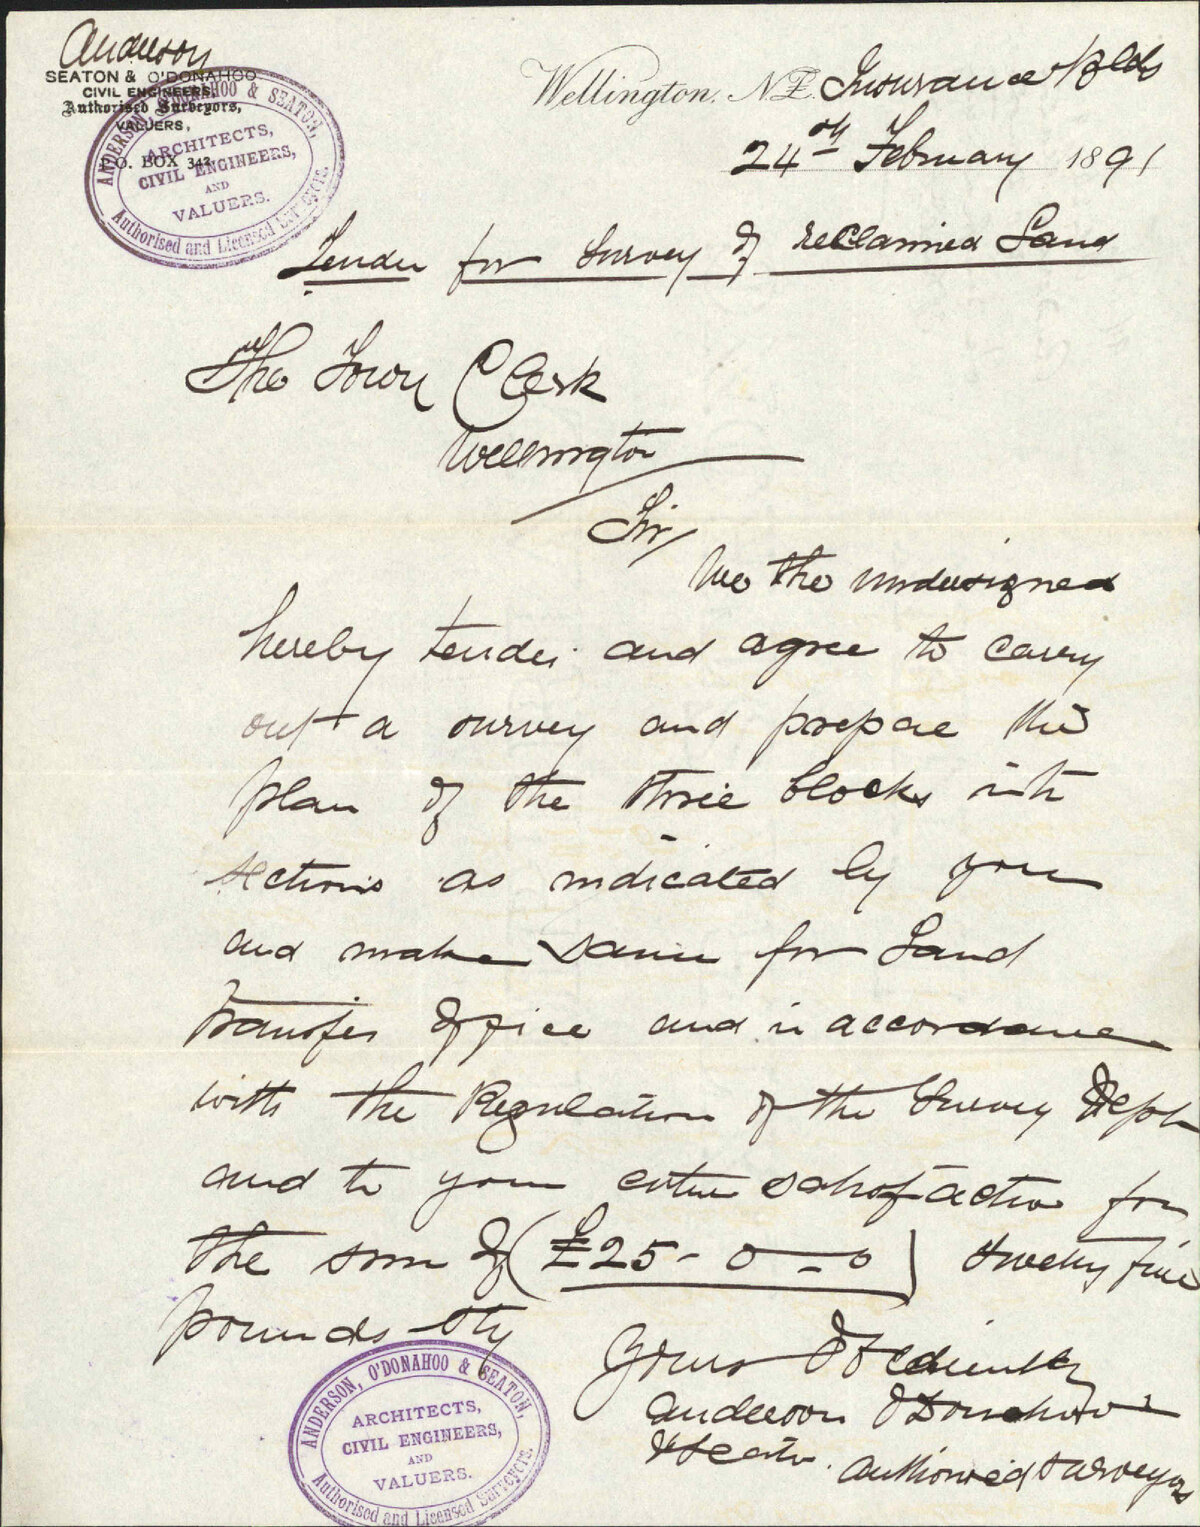 Anderson
SEATON & O'DONAHOO
CIVIL ENGINEERS,
Authorised Surveyors,
VALUERS,
P.O. BOX 343.
ANDERSON, O'DONAHOO & SEATON,
ARCHITECTS,
CIVIL ENGINEERS,
AND
VALUERS.
Authorised and Licensed Surveyors.
Wellington. N.Z. Insurance Blds
24th February 1891
Tender for Survey of reclaimed Land
The Town Clerk
Wellington
Sir/
We the undersigned
hereby tender and agree to carry
out a survey and prepare the
plan of the three blocks into
sections as indicated by you
and make same for Land
Transfer Office and in accordance
with the Regulation of the Survey Dept
and to your entire satisfaction for
the sum of (£25-0-0) twenty five
pounds stg
Yours Obediently
Anderson O'Donahoo
& Seaton. Authorised Surveyors
ANDERSON, O'DONAHOO & SEATON,
ARCHITECTS,
CIVIL ENGINEERS,
AND
VALUERS.
Authorised and Licensed Surveyors.